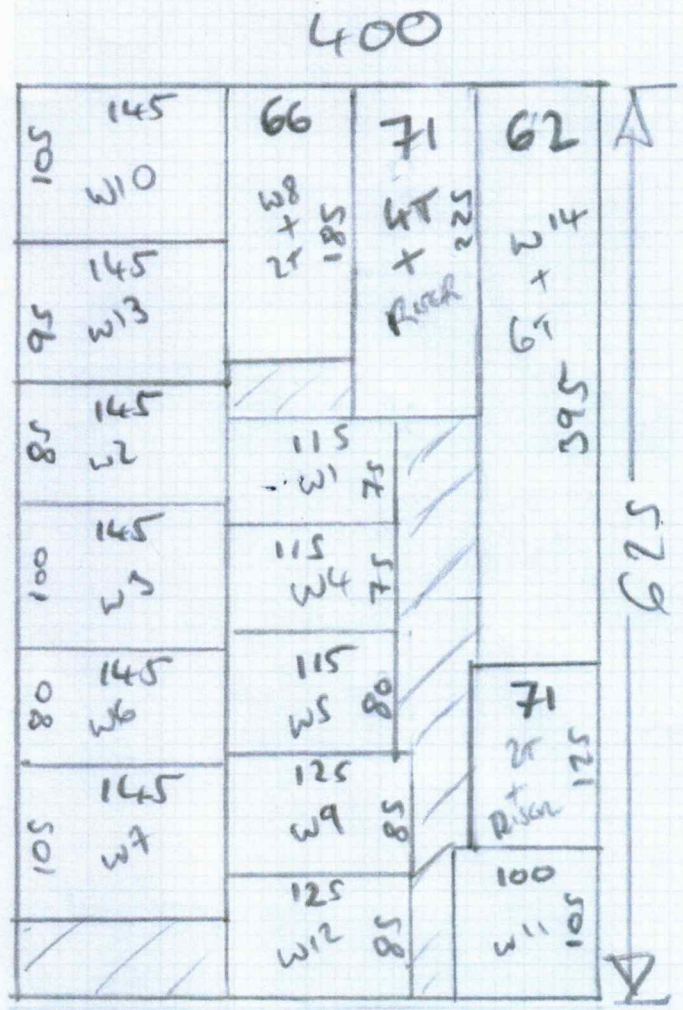 400
145
105
W10
145
95
W13
145
85
W2
145
100
W3
145
80
W6
145
105
W7
66
W8
+
2T
185
71
4T
+
RISER
225
62
W14
+
6T
395
625
115
W1
75
115
W4
75
115
W5
80
125
W9
85
125
W12
85
71
2T
+
RISER
125
100
W11
105